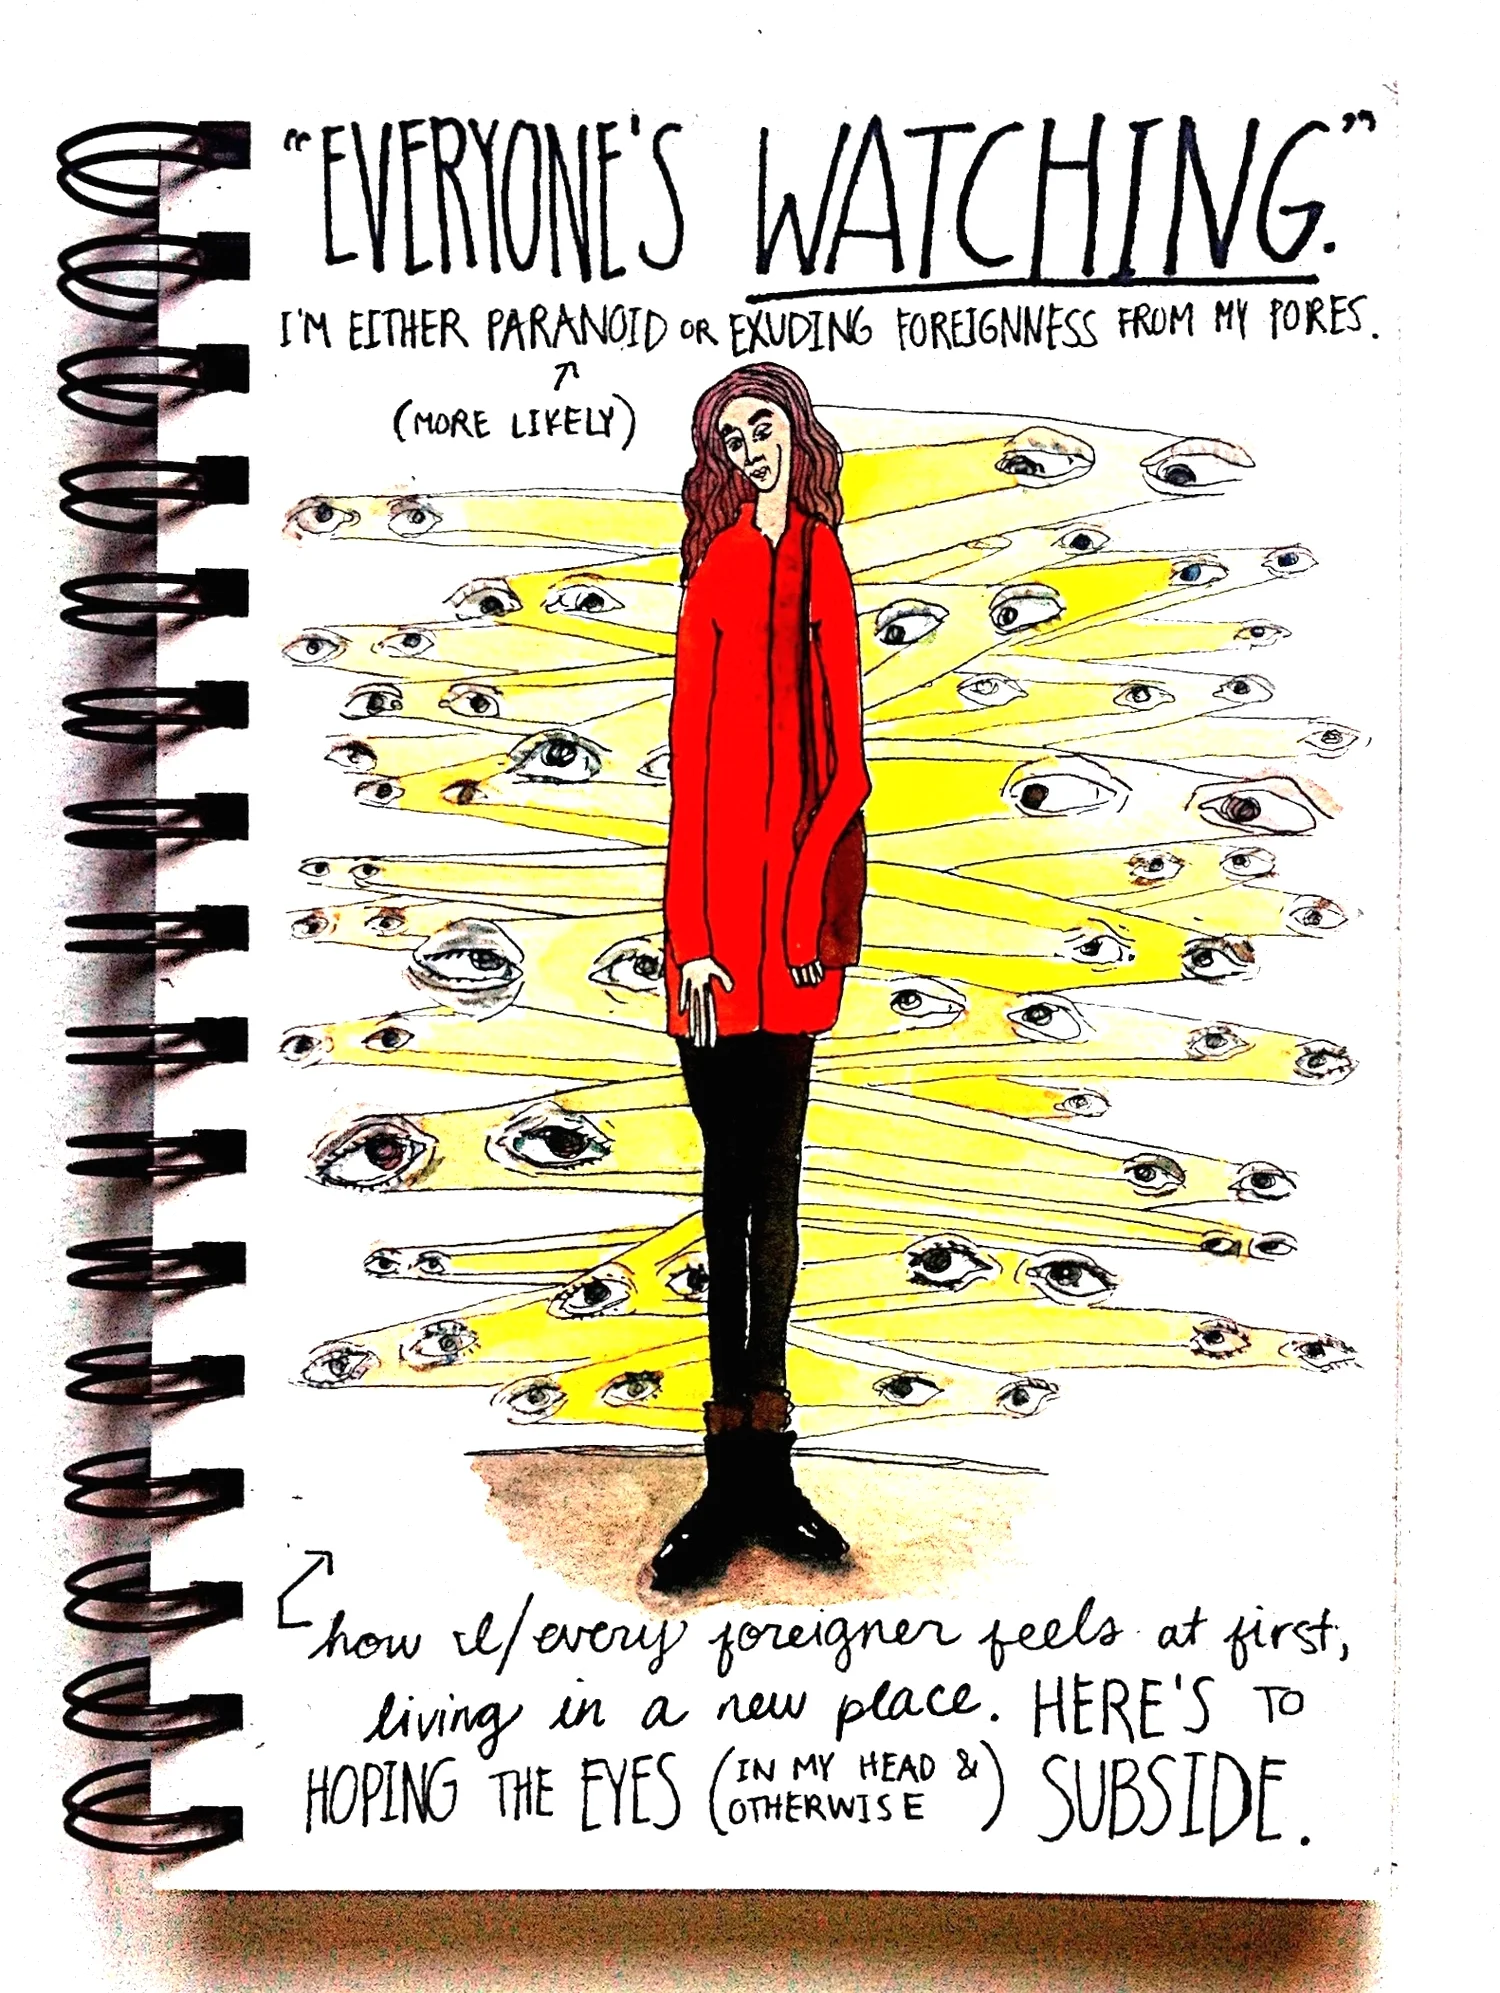 "EVERYONE'S WATCHING."
I'M EITHER PARANOID OR EXUDING FOREIGNNESS FROM MY PORES.
(MORE LIKELY)
how I/every foreigner feels at first,
living in a new place. HERE'S TO
HOPING THE EYES (IN MY HEAD &
OTHERWISE) SUBSIDE.